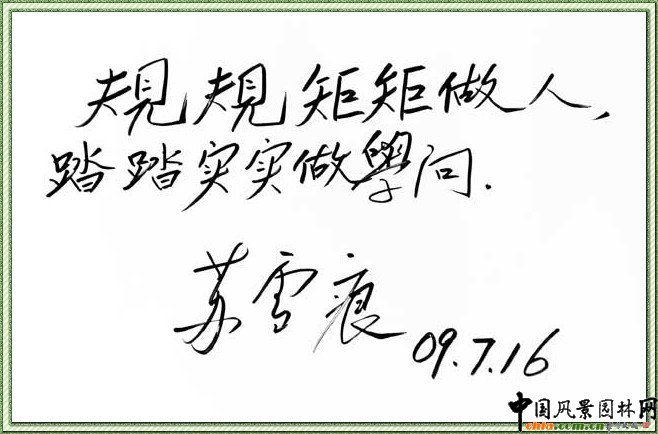 規規矩矩做人,
踏踏实实做學问.
苏雪痕
09.7.16
中国风景园林网
chla.com.cn